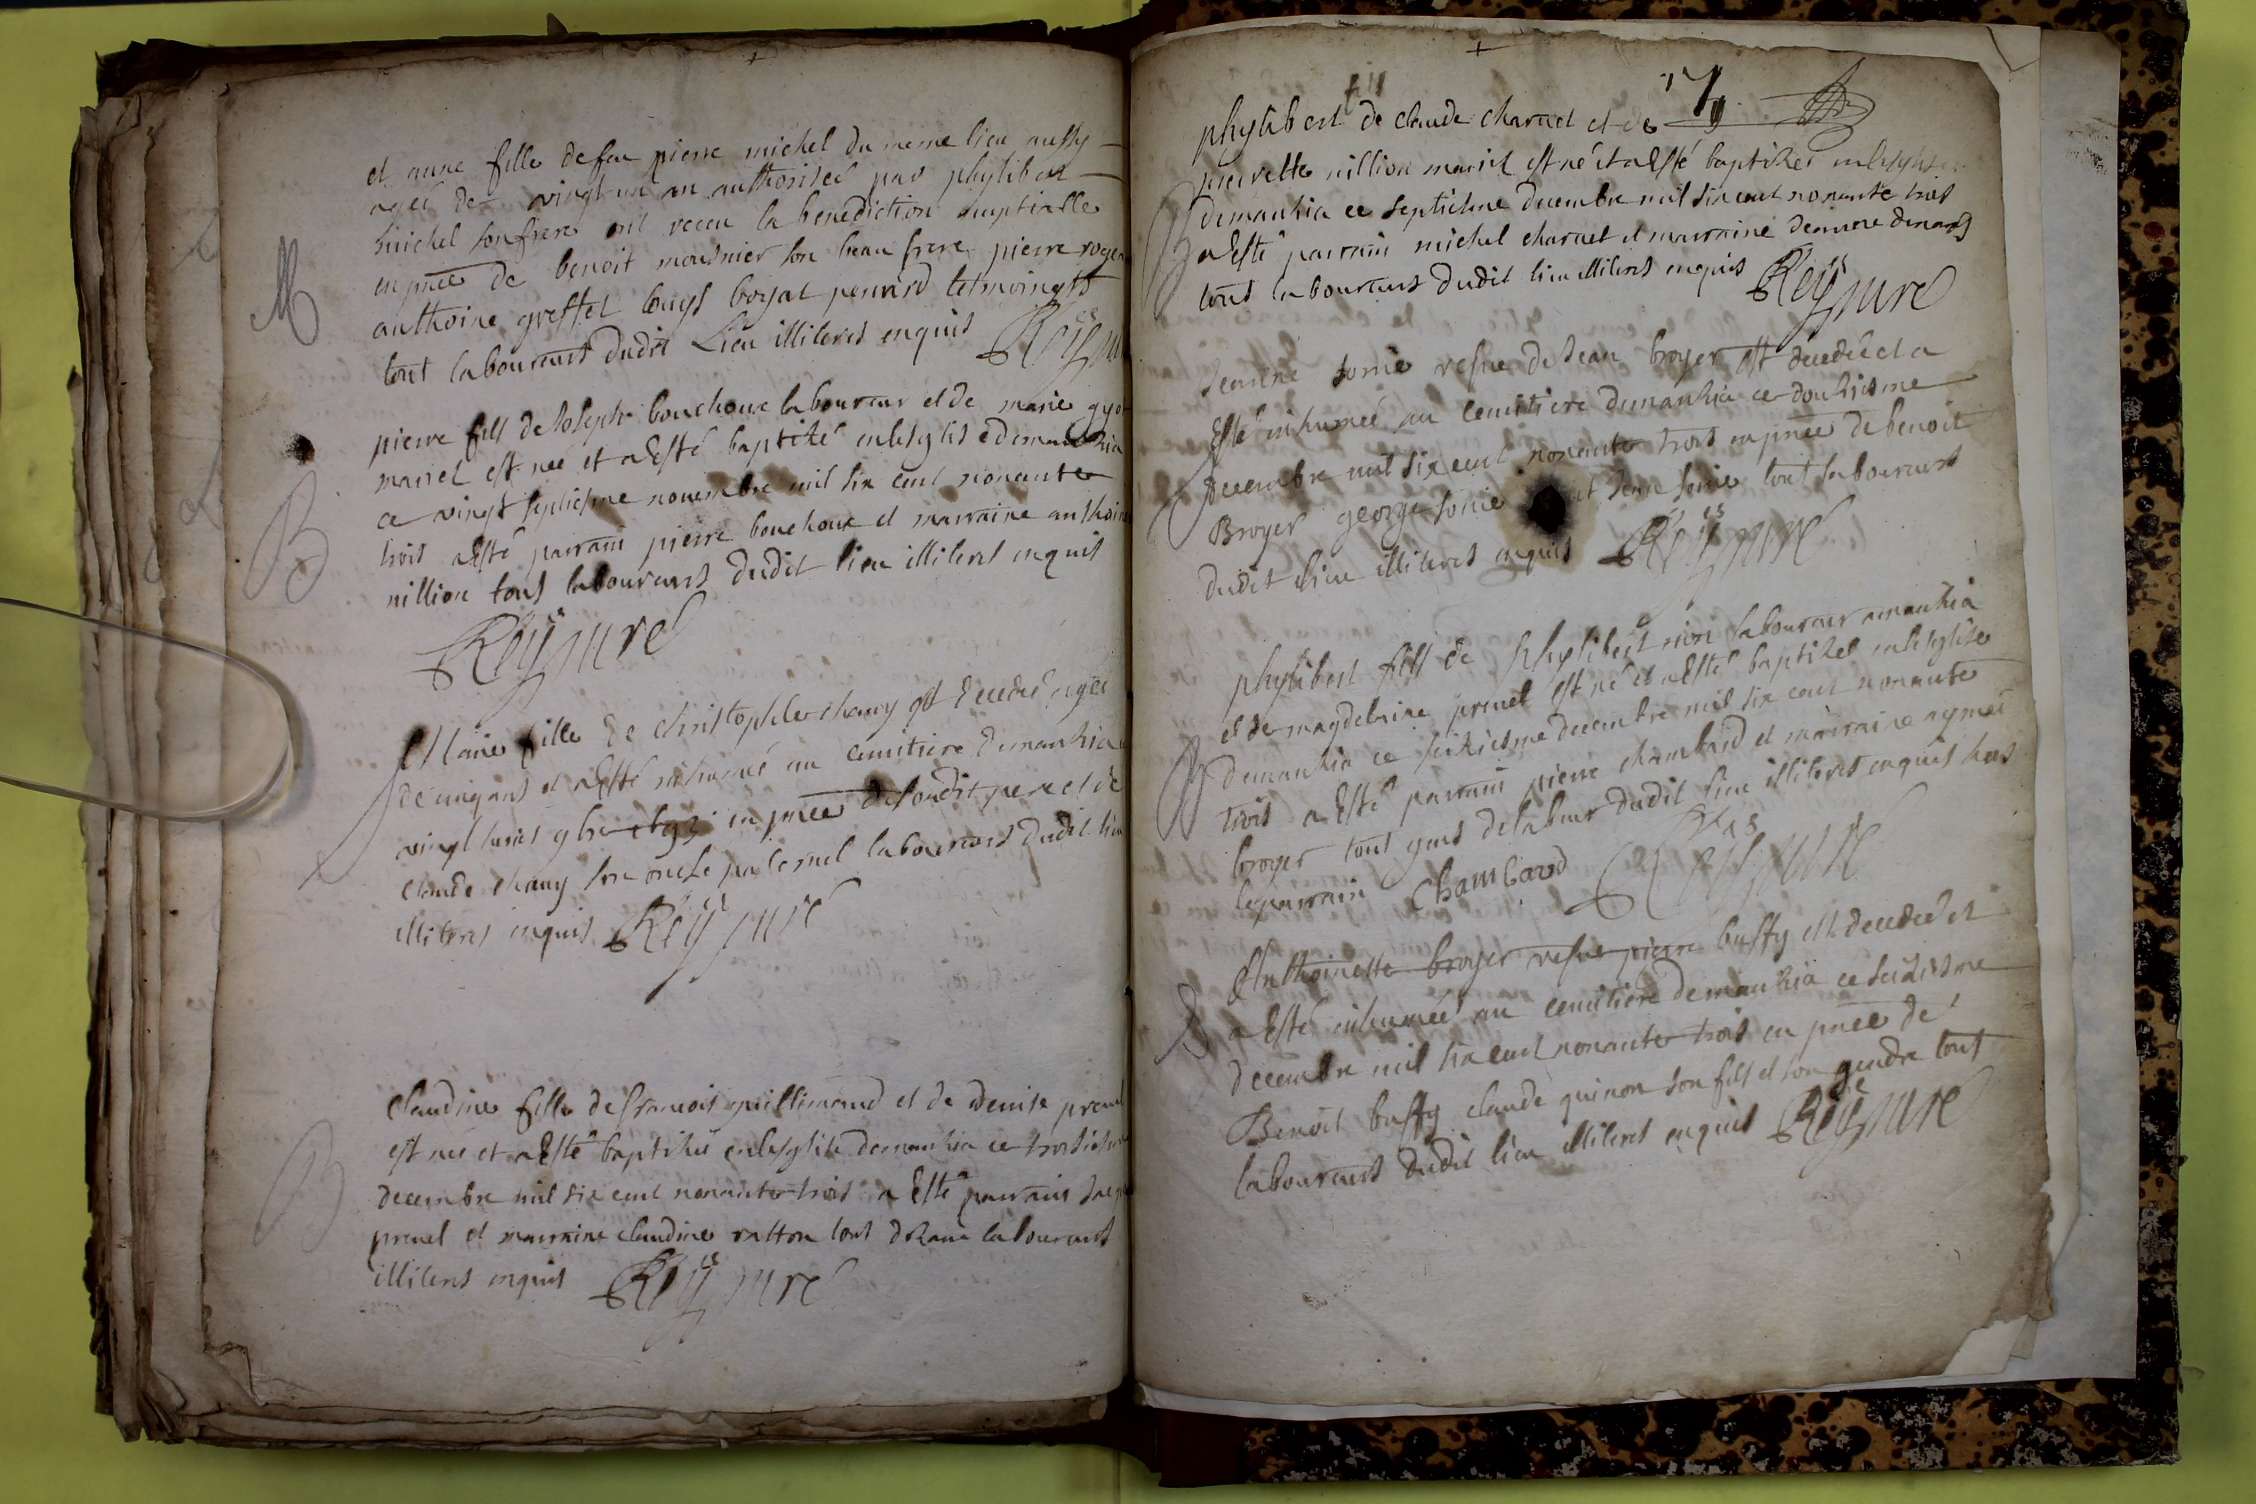 et anne fille de feu pierre michel du meme lieu aussy
agée de vingt un an authorisée par phylibert
michel son frere ont receu la benediction nuptialle
en pnce de benoit mousnier son beau frere pierre roger
anthoine greffet louys boyat tesmoingts
tout laboureurs dudit Lieu illiteres enquis Rey
M
pierre fils de Joseph bouchoux laboureur et de marie guyot
mariet est nee et a Esté baptizé en lesglise demanzia
ce vingt septiesme nouembre mil six cent nonante
trois a Esté parrain pierre bouchoux et marraine anthoine
nillion tous laboureurs dudit lieu illiteres enquis
Rey curé
B
fille de Christophle chany est decedé agée
de cinq ans et a Esté inhumée au cemitiere demanzia
vingt en pnce de sondit pere et de
claude chany son oncle paternel laboureurs dudit lieu
illiteres enquis Rey curé
Claudine fille de francois guillimaud et de denise prenel
est née et a Esté baptizée en lesglise demanzia ce troisiesme
decembre mil six cent nonante trois a Esté parrain
prenel et marraine claudine ratton tous laboureurs
illiteres enquis Rey curé
B
17
phylibert fils de claude charnet et de
pierrette nillion mariés est né et a Esté baptizé en lesglise
demanzia ce septiesme decembre mil six cent nonante trois
a Esté parrain michel charnet et marraine
tous laboureurs dudit lieu illiteres enquis Rey curé
B
Jeanne sornie vefue de Jean broyer est decedée et a
Esté inhumée au cemitiere demanzia ce douziesme
decembre mil six cent nonante trois en pnce de benoit
Broyer george sornie et Jean sornie tout laboureurs
dudit lieu illiteres enquis Rey curé
phylibert fils de phylibert laboureur a manzia
et de magdelaine prenel est né et a Esté baptizé en lesglise
demanzia ce decembre mil six cent nonante
trois a Esté parrain pierre chambard et marraine aymée
broyer tout gens de labeur dudit lieu illiteres enquis hors
le parrain Chambard Rey curé
B
Anthoinette broyer vefue pierre buffy est decedée et
a Esté inhumée au cemitiere demanzia ce seiziesme
decembre mil six cent nonante trois en pnce de
Benoit buffy claude quinon son fils et son gendre tout
laboureurs dudit lieu illiteres enquis Rey curé